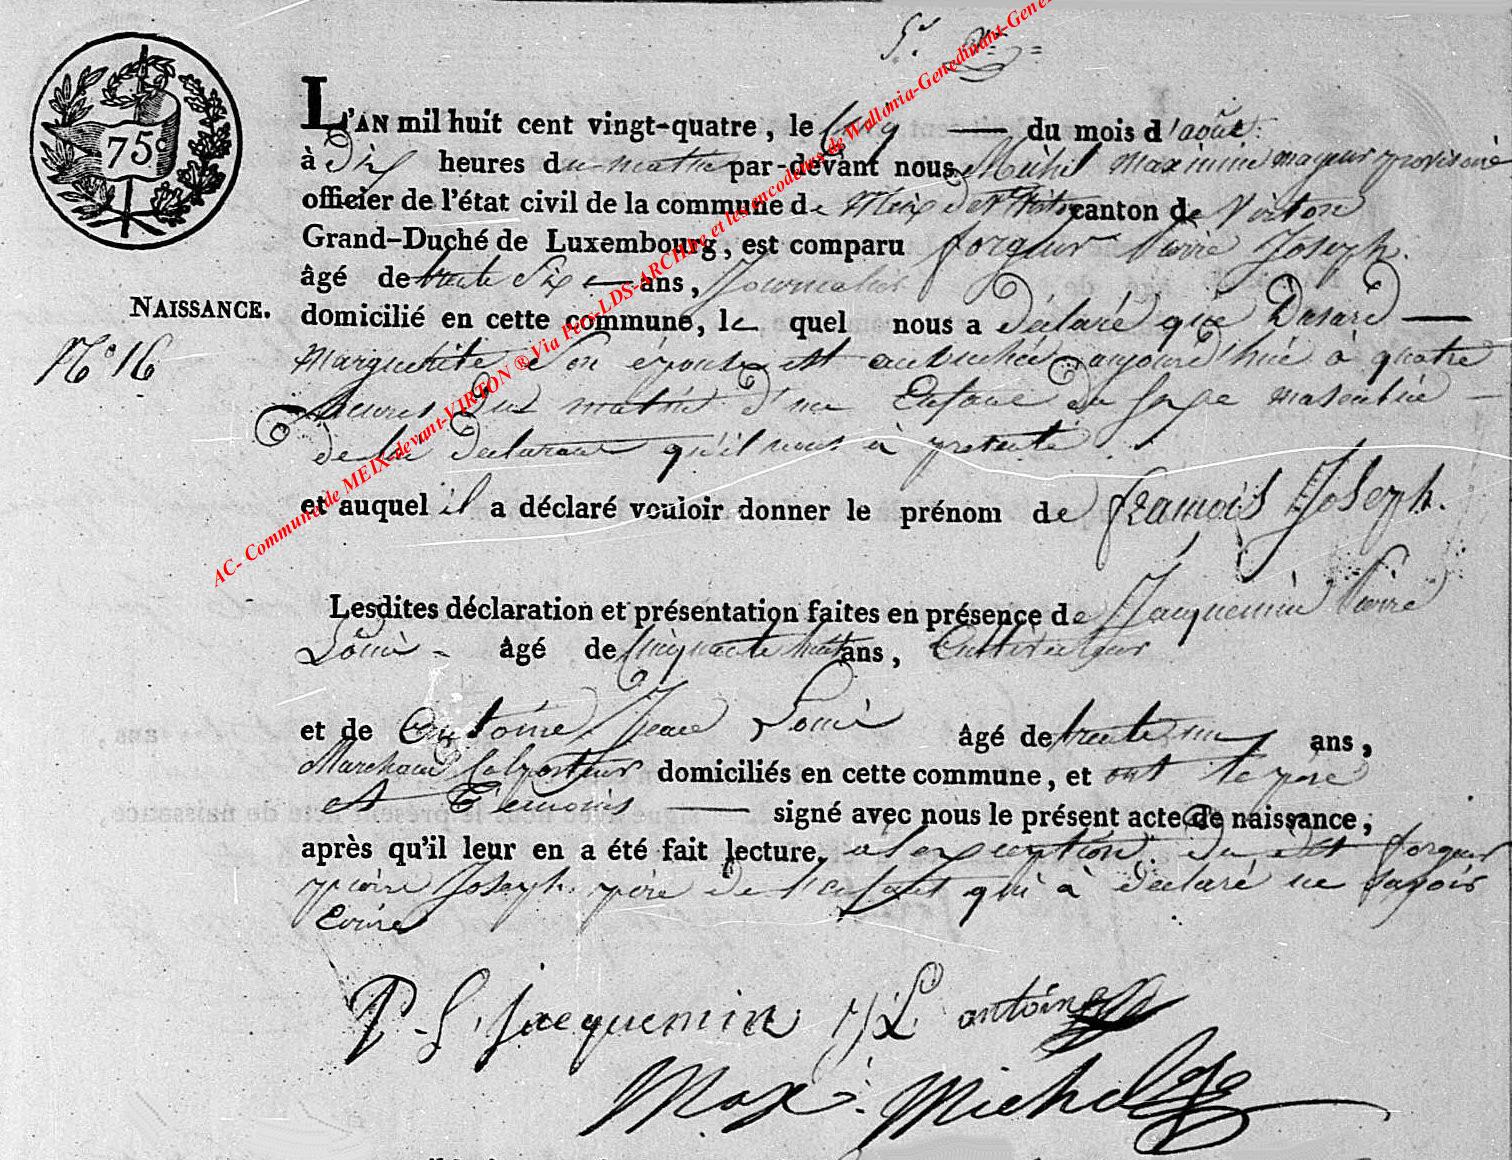 5e
75c
L'AN mil huit cent vingt-quatre, le cinq du mois d'août
à Dix heures du matin par-devant nous Michel maximin mayeur provisoire
officier de l'état civil de la commune de Meix devt Virton canton de Virton
Grand-Duché de Luxembourg, est comparu forgeur Pierre Joseph.
âgé de trente Six ans, Journalier
NAISSANCE.
domicilié en cette commune, le quel nous a déclaré que Dasard
N° 16
Marguerite Son épouse est accouchée aujourd'hui à quatre
heures du matin d'un Enfant du Sexe masculin
de lui déclarant qu'il nous à presenté.
et auquel il a déclaré vouloir donner le prénom de francois Joseph.
Lesdites déclaration et présentation faites en présence de Jacquemin Pierre
Louis âgé de cinquante huit ans, Cultivateur
et de Antoine Jean Louis âgé de trente un ans,
Marchand Colporteur domiciliés en cette commune, et ont le père
et Témoins signé avec nous le présent acte de naissance,
après qu'il leur en a été fait lecture, a l'exception du dit forgeur
pierre Joseph père de l'enfant qui à déclaré ne savoir
Ecrire
P L jacquemin J L antoine
Max. Michel
AC- Commune de MEIX-devant-VIRTON ® Via Pics-LDS-ARCHive et les encodeurs de Wallonia-Genedinant-Gene